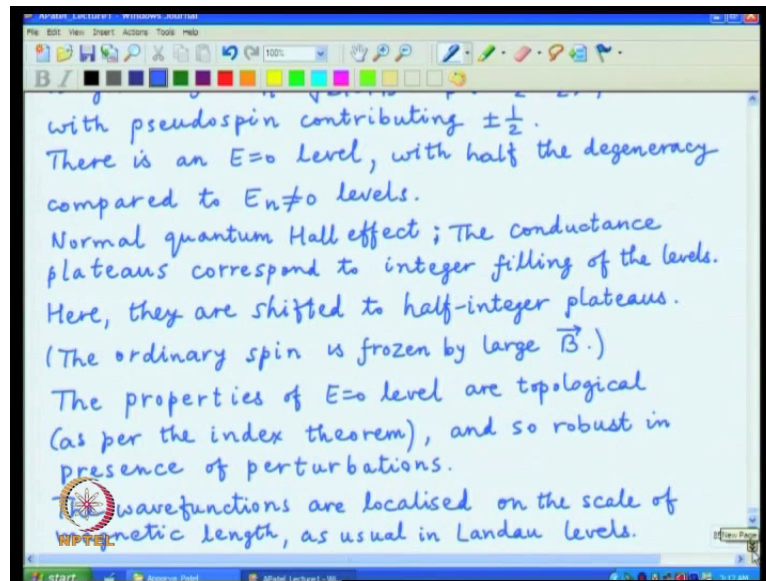 APatel_Lecture1 - Windows Journal
File Edit View Insert Actions Tools Help
100%
B I
with pseudospin contributing ± 1/2 .
There is an E=0 level, with half the degeneracy
compared to En≠0 levels.
Normal quantum Hall effect ; The conductance
plateaus correspond to integer filling of the levels.
Here, they are shifted to half-integer plateaus.
(The ordinary spin is frozen by large B⃗ .)
The properties of E=0 level are topological
(as per the index theorem), and so robust in
presence of perturbations.
The wavefunctions are localised on the scale of
magnetic length, as usual in Landau levels.
NPTEL
New Page
start Apoorva Patel APatel_Lecture1 - Wi... 3:12 AM